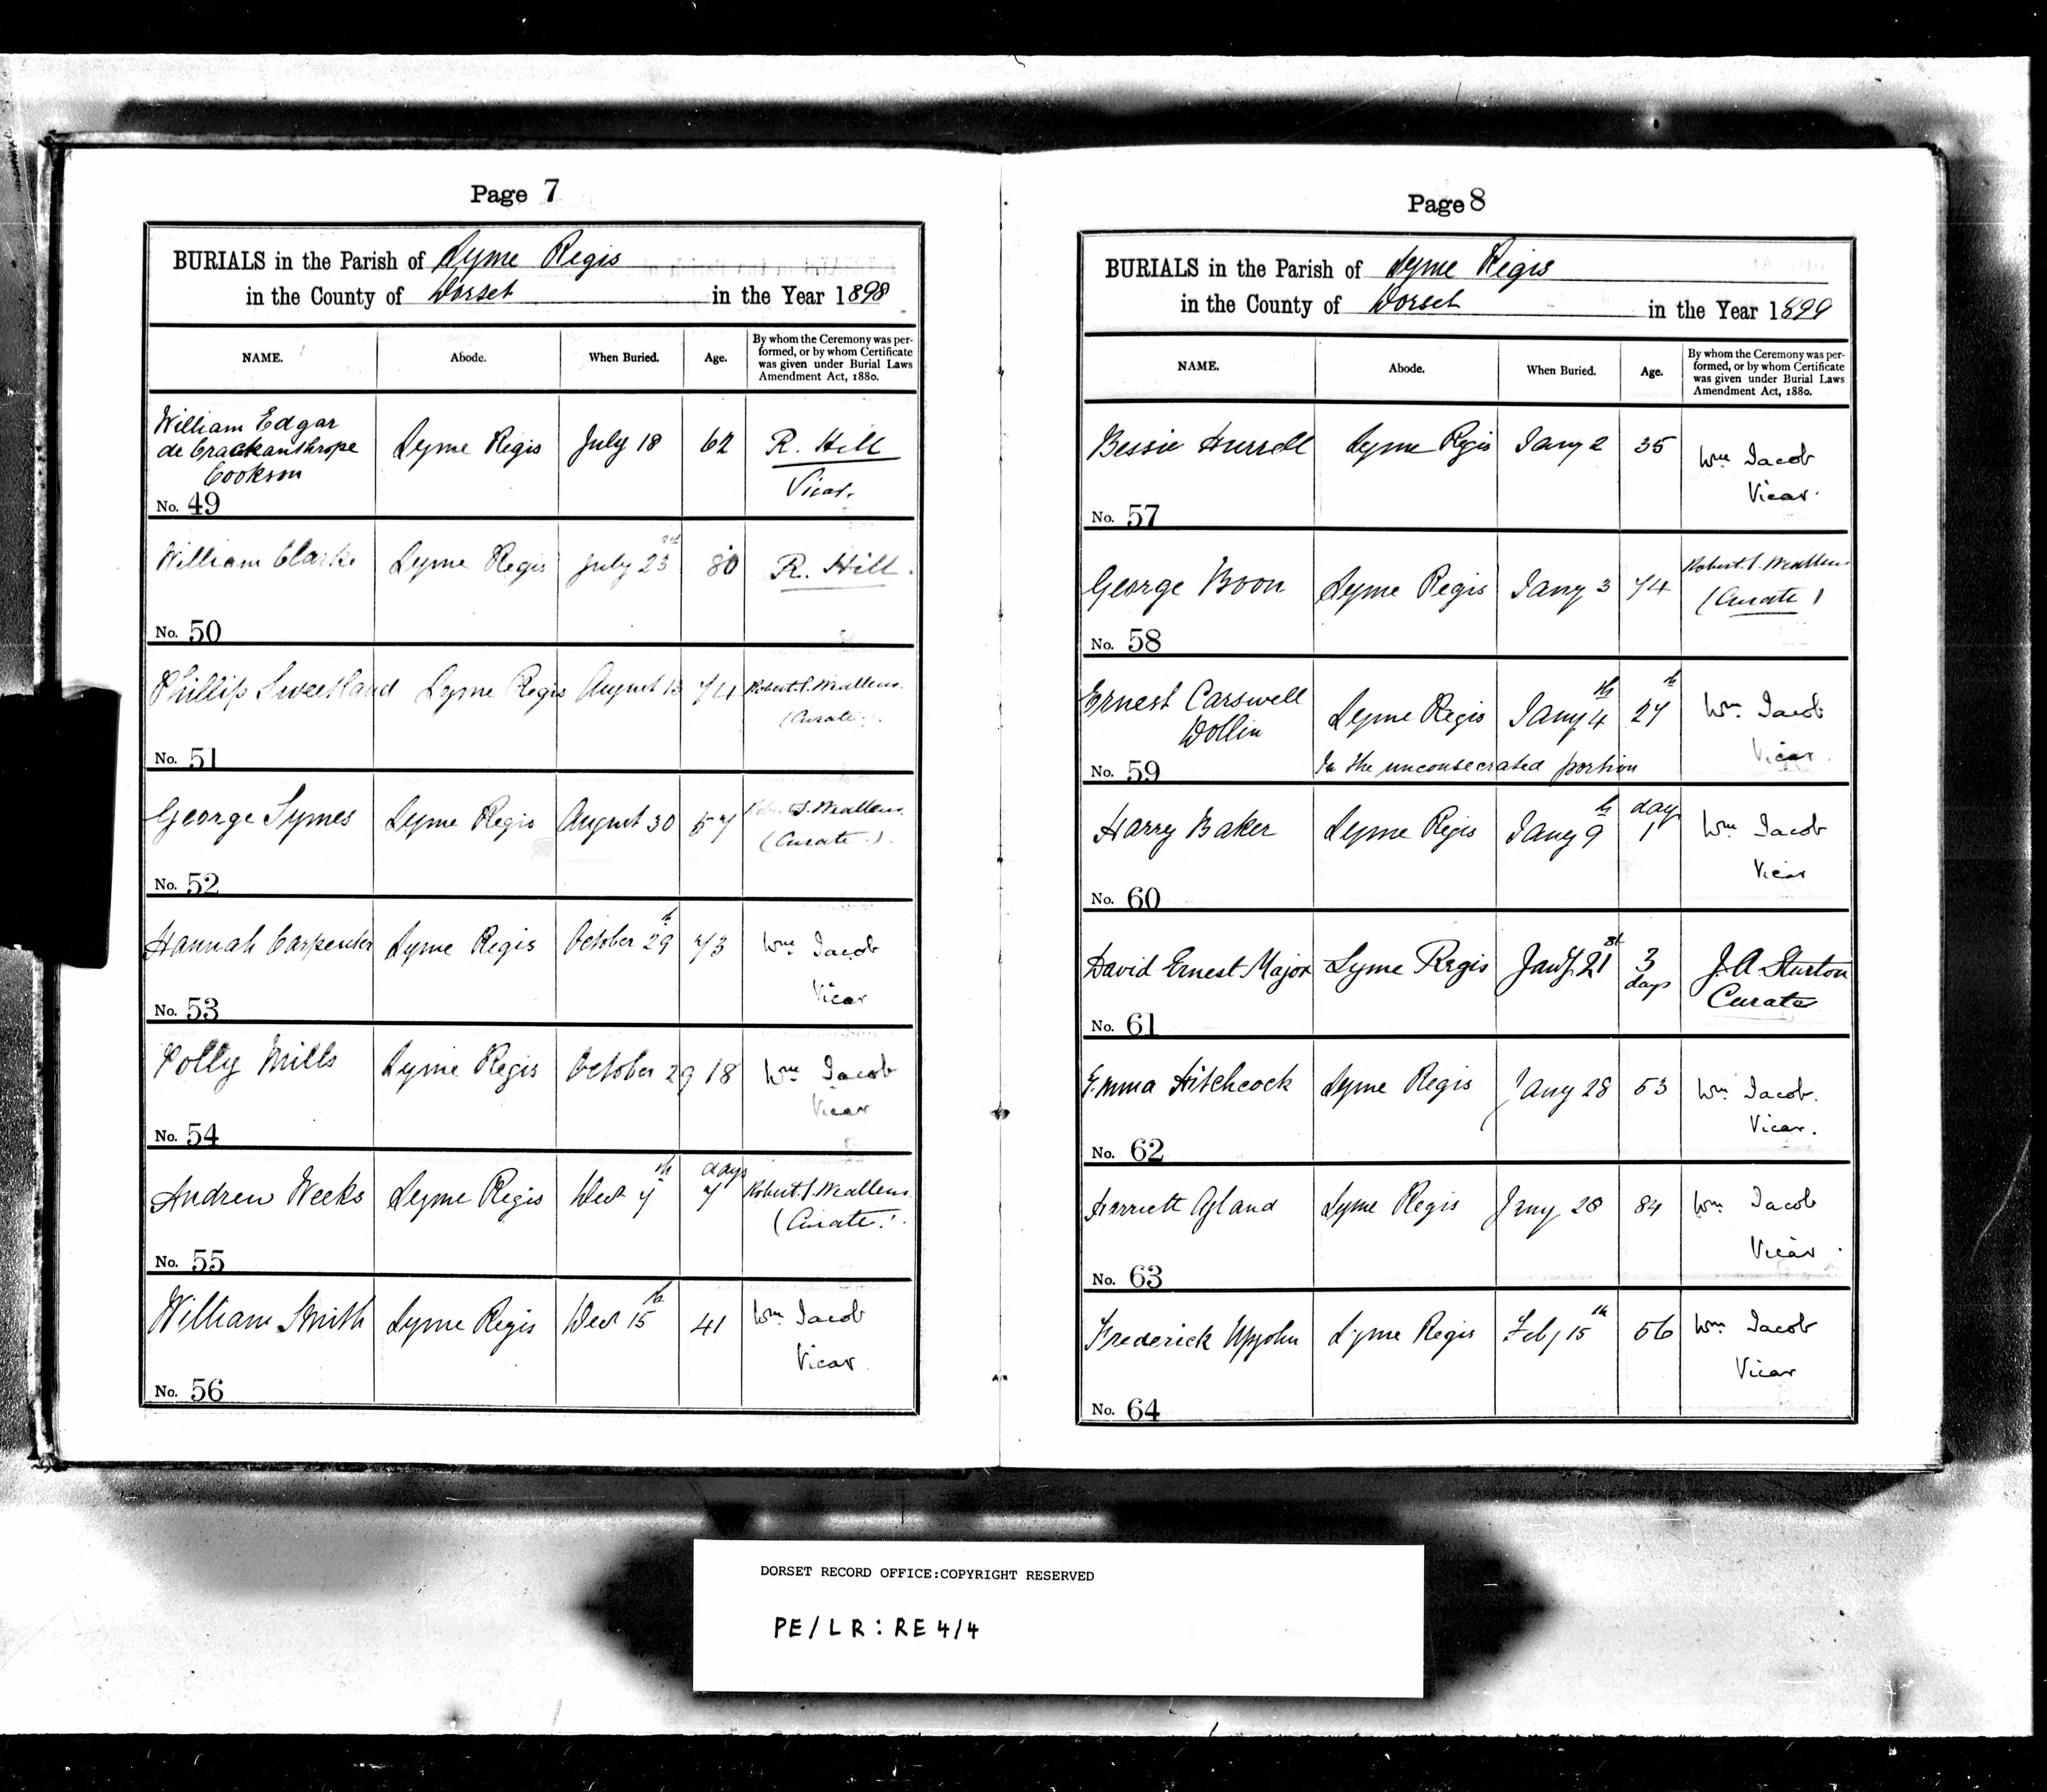 Page 7
BURIALS in the Parish of Lyme Regis
in the County of Dorset in the Year 1898
NAME. Abode. When Buried. Age. By whom the Ceremony was per-
formed, or by whom Certificate
was given under Burial Laws
Amendment Act, 1880.
William Edgar
de Crackanthrope
Cookson
Lyme Regis July 18 62 R. Hill
Vicar.
No. 49
William Clarke Lyme Regis July 23rd 80 R. Hill.
No. 50
Phillip Sweetland Lyme Regis August 13 74 Robert S. Weallens.
(Curate.)
No. 51
George Symes Lyme Regis August 30 57 Robert S. Weallens.
(Curate.).
No. 52
Hannah Carpenter Lyme Regis October 29th 73 Wm Jacob
Vicar
No. 53
Polly Mills Lyme Regis October 29 18 Wm Jacob
Vicar
No. 54
Andrew Weeks Lyme Regis Decr 7th 7 days Robert S. Weallens.
(Curate.)
No. 55
William Smith Lyme Regis Decr 15th 41 Wm Jacob
Vicar
No. 56
Page 8
BURIALS in the Parish of Lyme Regis
in the County of Dorset in the Year 1899
NAME. Abode. When Buried. Age. By whom the Ceremony was per-
formed, or by whom Certificate
was given under Burial Laws
Amendment Act, 1880.
Bessie Hurrell Lyme Regis Jany 2 35 Wm Jacob
Vicar.
No. 57
George Boon Lyme Regis Jany 3 74 Robert S. Weallens
(Curate)
No. 58
Ernest Carswell
Wollin
Lyme Regis Jany 4th 27 Wm Jacob
Vicar.
No. 59 In the unconsecrated portion
Harry Baker Lyme Regis Jany 9th day 1 Wm Jacob
Vicar
No. 60
David Ernest Major Lyme Regis Jany 21st 3 days J. A. Sturton
Curate
No. 61
Emma Hitchcock Lyme Regis Jany 28 53 Wm Jacob.
Vicar.
No. 62
Harriett Ayland Lyme Regis Jany 28 84 Wm Jacob
Vicar.
No. 63
Frederick Upjohn Lyme Regis Feby 15th 56 Wm Jacob
Vicar
No. 64
DORSET RECORD OFFICE:COPYRIGHT RESERVED
PE/LR: RE 4/4